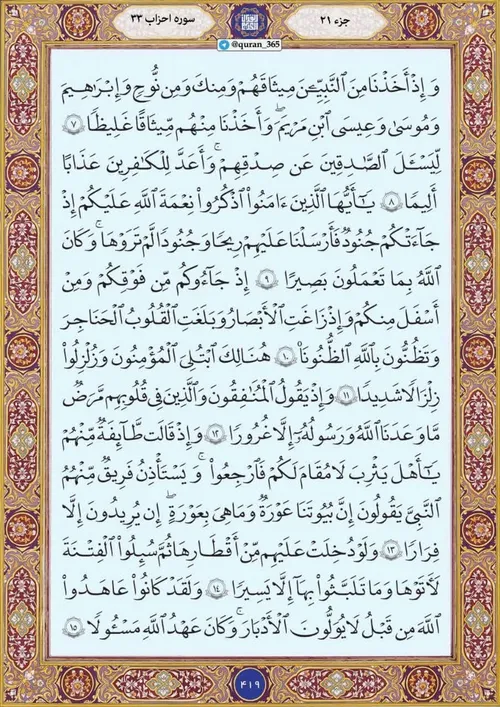 جزء ۲۱
سوره احزاب ۳۳
@quran_365
وَإِذْ أَخَذْنَا مِنَ النَّبِيِّينَ مِيثَاقَهُمْ وَمِنكَ وَمِن نُّوحٍ وَإِبْرَاهِيمَ
وَمُوسَىٰ وَعِيسَى ابْنِ مَرْيَمَ ۖ وَأَخَذْنَا مِنْهُم مِّيثَاقًا غَلِيظًا ۷
لِّيَسْـَٔلَ الصَّادِقِينَ عَن صِدْقِهِمْ ۚ وَأَعَدَّ لِلْكَافِرِينَ عَذَابًا
أَلِيمًا ۸ يَا أَيُّهَا الَّذِينَ ءَامَنُوا۟ اذْكُرُوا۟ نِعْمَةَ اللَّهِ عَلَيْكُمْ إِذْ
جَآءَتْكُمْ جُنُودٌ فَأَرْسَلْنَا عَلَيْهِمْ رِيحًا وَجُنُودًا لَّمْ تَرَوْهَا ۚ وَكَانَ
اللَّهُ بِمَا تَعْمَلُونَ بَصِيرًا ۹ إِذْ جَآءُوكُم مِّن فَوْقِكُمْ وَمِنْ
أَسْفَلَ مِنكُمْ وَإِذْ زَاغَتِ الْأَبْصَارُ وَبَلَغَتِ الْقُلُوبُ الْحَنَاجِرَ
وَتَظُنُّونَ بِاللَّهِ الظُّنُونَا۠ ۱۰ هُنَالِكَ ابْتُلِىَ الْمُؤْمِنُونَ وَزُلْزِلُوا۟
زِلْزَالًا شَدِيدًا ۱۱ وَإِذْ يَقُولُ الْمُنَافِقُونَ وَالَّذِينَ فِى قُلُوبِهِم مَّرَضٌ
مَّا وَعَدَنَا اللَّهُ وَرَسُولُهُۥٓ إِلَّا غُرُورًا ۱۲ وَإِذْ قَالَت طَّآئِفَةٌ مِّنْهُمْ
يَا أَهْلَ يَثْرِبَ لَا مُقَامَ لَكُمْ فَارْجِعُوا۟ ۚ وَيَسْتَأْذِنُ فَرِيقٌ مِّنْهُمُ
النَّبِىَّ يَقُولُونَ إِنَّ بُيُوتَنَا عَوْرَةٌ وَمَا هِىَ بِعَوْرَةٍ ۖ إِن يُرِيدُونَ إِلَّا
فِرَارًا ۱۳ وَلَوْ دُخِلَتْ عَلَيْهِم مِّنْ أَقْطَارِهَا ثُمَّ سُئِلُوا۟ الْفِتْنَةَ
لَأَتَوْهَا وَمَا تَلَبَّثُوا۟ بِهَآ إِلَّا يَسِيرًا ۱۴ وَلَقَدْ كَانُوا۟ عَاهَدُوا۟
اللَّهَ مِن قَبْلُ لَا يُوَلُّونَ الْأَدْبَارَ ۚ وَكَانَ عَهْدُ اللَّهِ مَسْئُولًا ۱۵
۴۱۹